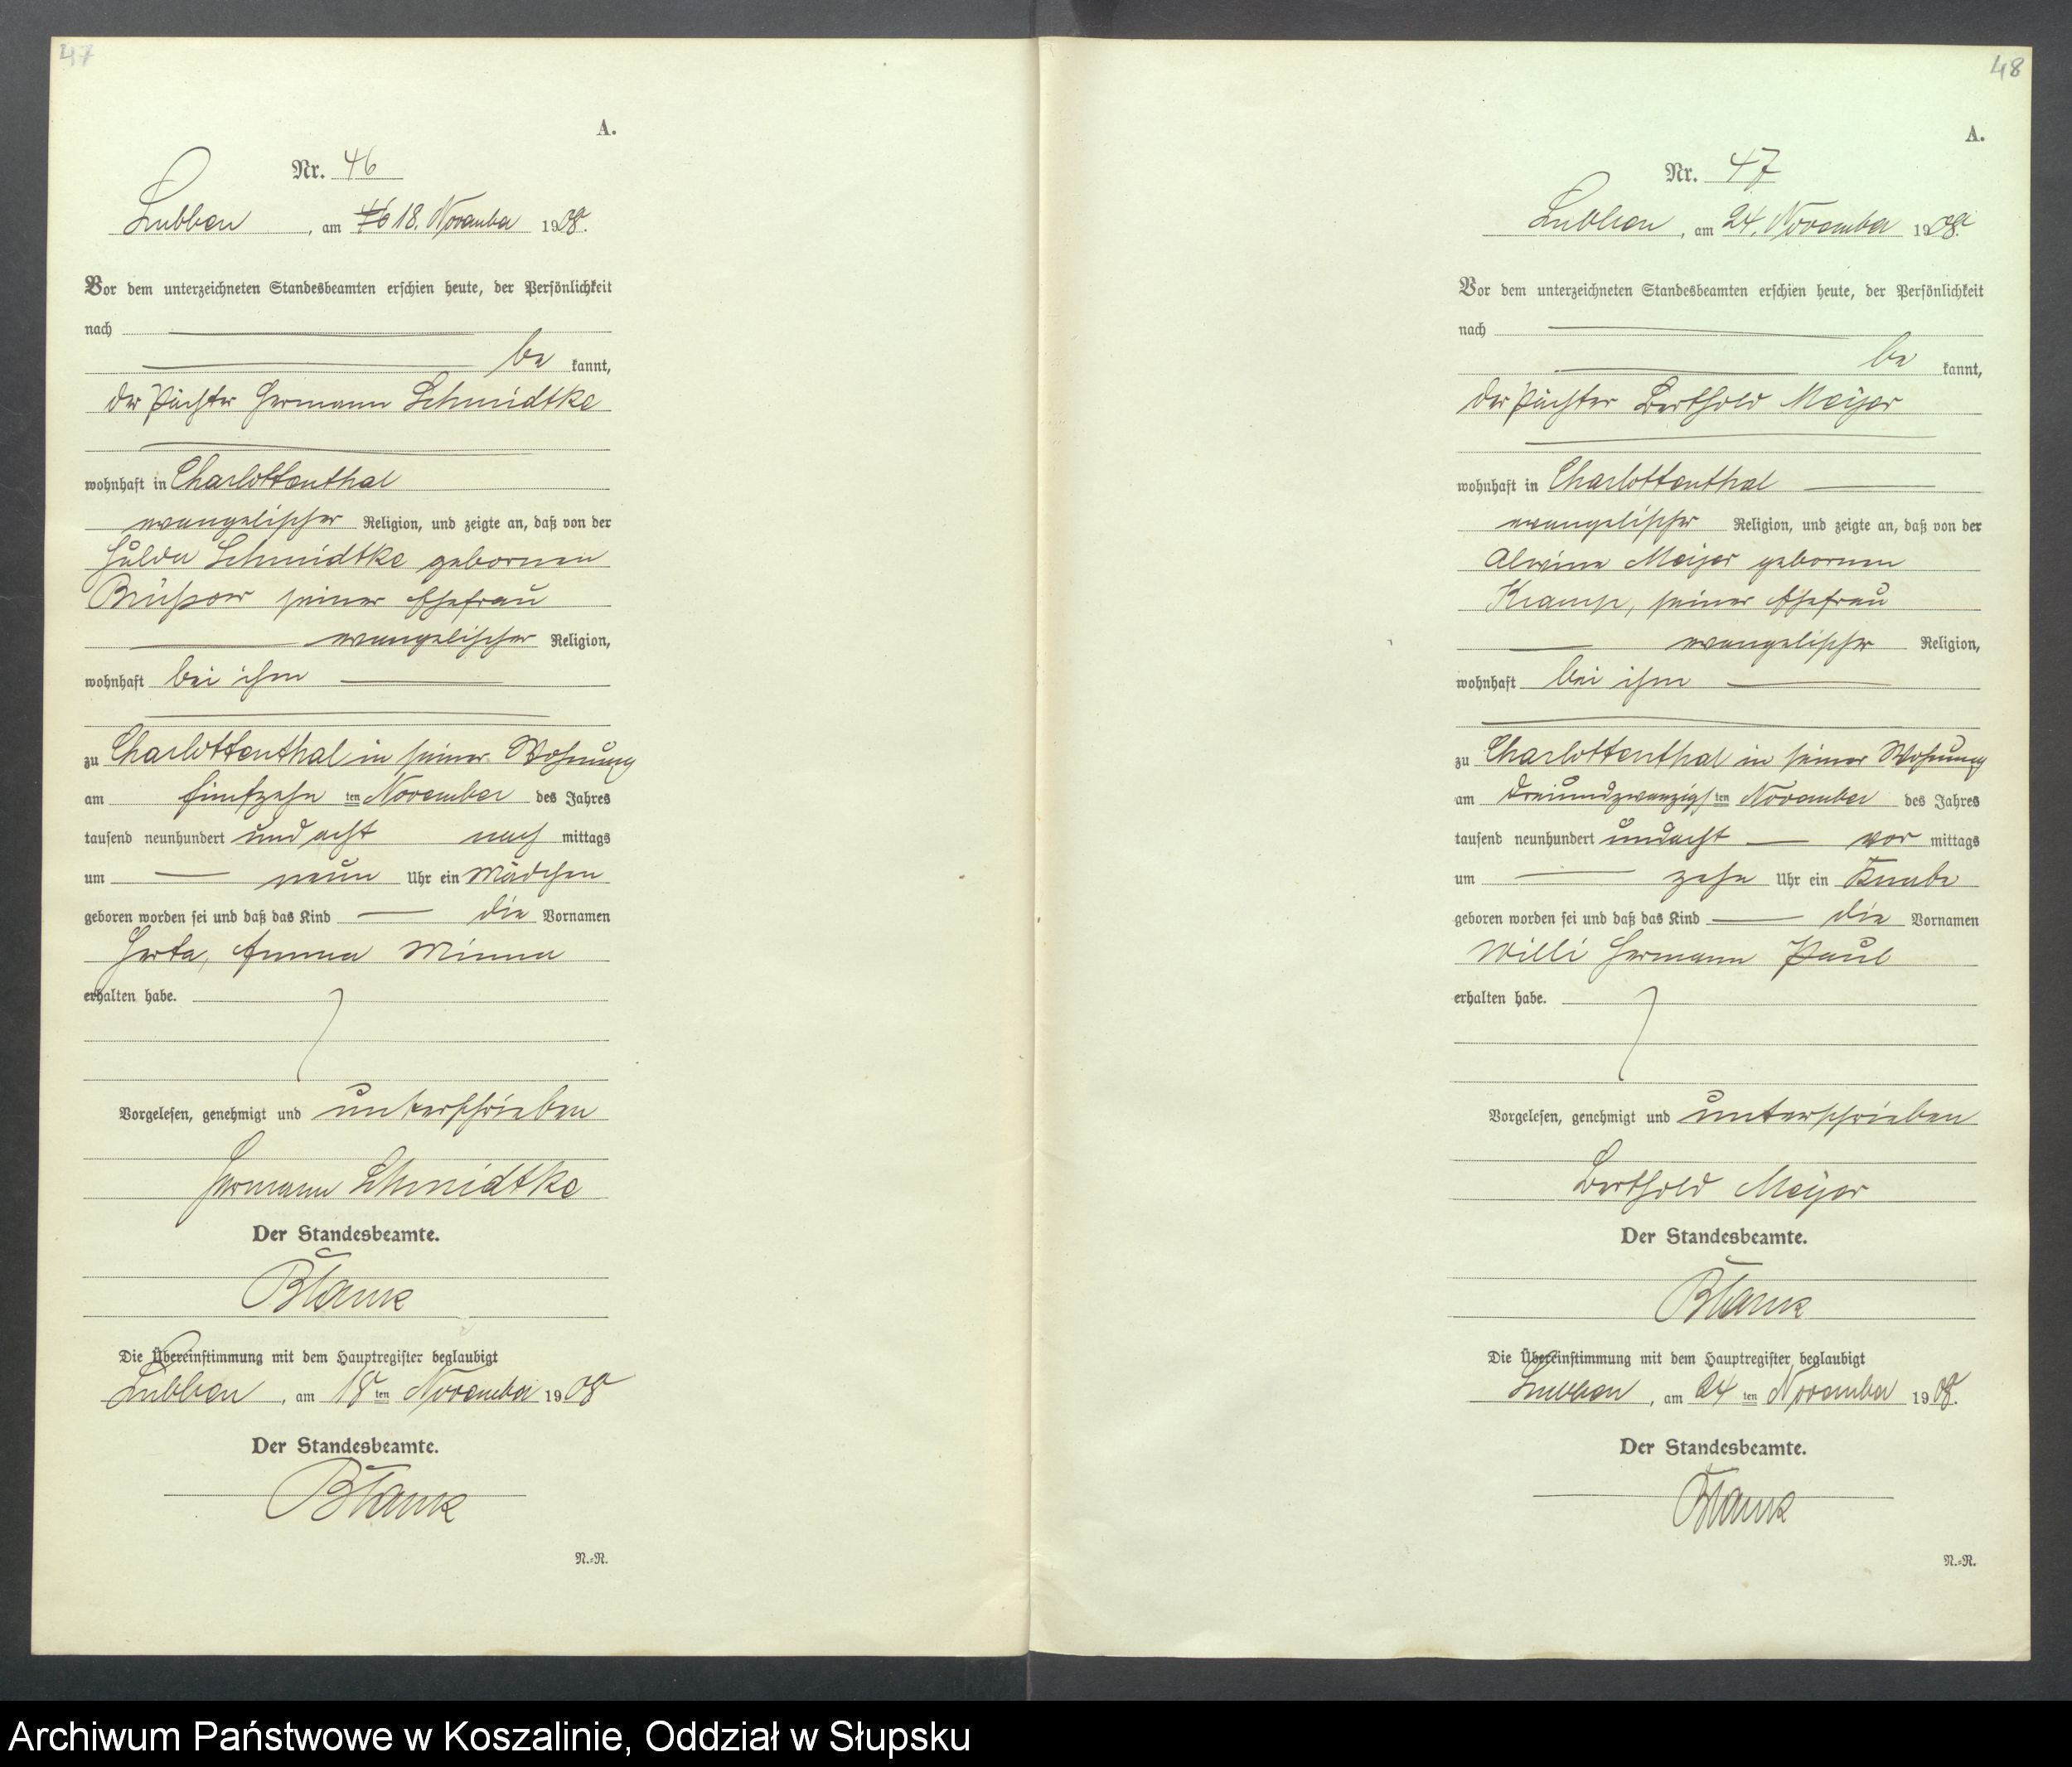 47
A.
Nr. 46
Lubben, am 18. November 1908.
Vor dem unterzeichneten Standesbeamten erschien heute, der Persönlichkeit
nach
be kannt,
der Pächter Hermann Schmidtke
wohnhaft in Charlottenthal
evangelischer Religion, und zeigte an, daß von der
Hulda Schmidtke gebornen
seiner Ehefrau
evangelischer Religion,
wohnhaft bei ihm
zu Charlottenthal in seiner Wohnung
am fünfzehn ten November des Jahres
tausend neunhundert und acht nach mittags
um neun Uhr ein Mädchen
geboren worden sei und daß das Kind die Vornamen
Herta, Emma Minna
erhalten habe.
Vorgelesen, genehmigt und unterschrieben
Hermann Schmidtke
Der Standesbeamte.
Blank
Die Übereinstimmung mit dem Hauptregister beglaubigt
Lubben, am 18 ten November 1908
Der Standesbeamte.
Blank
N.=R.
48
A.
Nr. 47
Lubben, am 24. November 1908.
Vor dem unterzeichneten Standesbeamten erschien heute, der Persönlichkeit
nach
be kannt,
der Pächter Berthold Meyer
wohnhaft in Charlottenthal
evangelischer Religion, und zeigte an, daß von der
Alwine Meyer gebornen
Kramp, seiner Ehefrau
evangelischer Religion,
wohnhaft bei ihm
zu Charlottenthal in seiner Wohnung
am dreiundzwanzigs ten November des Jahres
tausend neunhundert undacht vor mittags
um zehn Uhr ein Knabe
geboren worden sei und daß das Kind die Vornamen
Willi Hermann Paul
erhalten habe.
Vorgelesen, genehmigt und unterschrieben
Berthold Meyer
Der Standesbeamte.
Blank
Die Übereinstimmung mit dem Hauptregister beglaubigt
Lubben, am 24 ten November 1908.
Der Standesbeamte.
Blank
N.=R.
Archiwum Państwowe w Koszalinie, Oddział w Słupsku